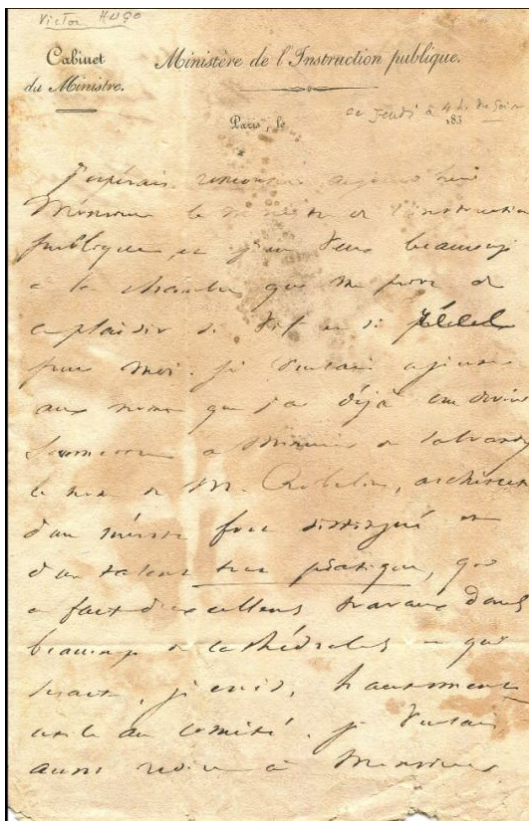 Victor Hugo
Cabinet
du Ministre.
Ministère de l'Instruction publique.
ce jeudi à 4 h. du soir
Paris, le 183
J'espérais rencontrer aujourd'hui
Monsieur le ministre de l'instruction
publique, et j'en veux beaucoup
à la chambre qui me prive de
ce plaisir si vif et si
pour moi. Je voulais ajouter
aux noms que j'ai déjà cru devoir
à Monsieur de Salvandy
le nom de M. Robelin, architecte
d'un mérite fort distingué et
d'un talent très pratique, qui
a fait d'excellens travaux dans
beaucoup de cathédrales et qui
serait, je crois, hautement
utile au comité. Je voulais
aussi à Monsieur